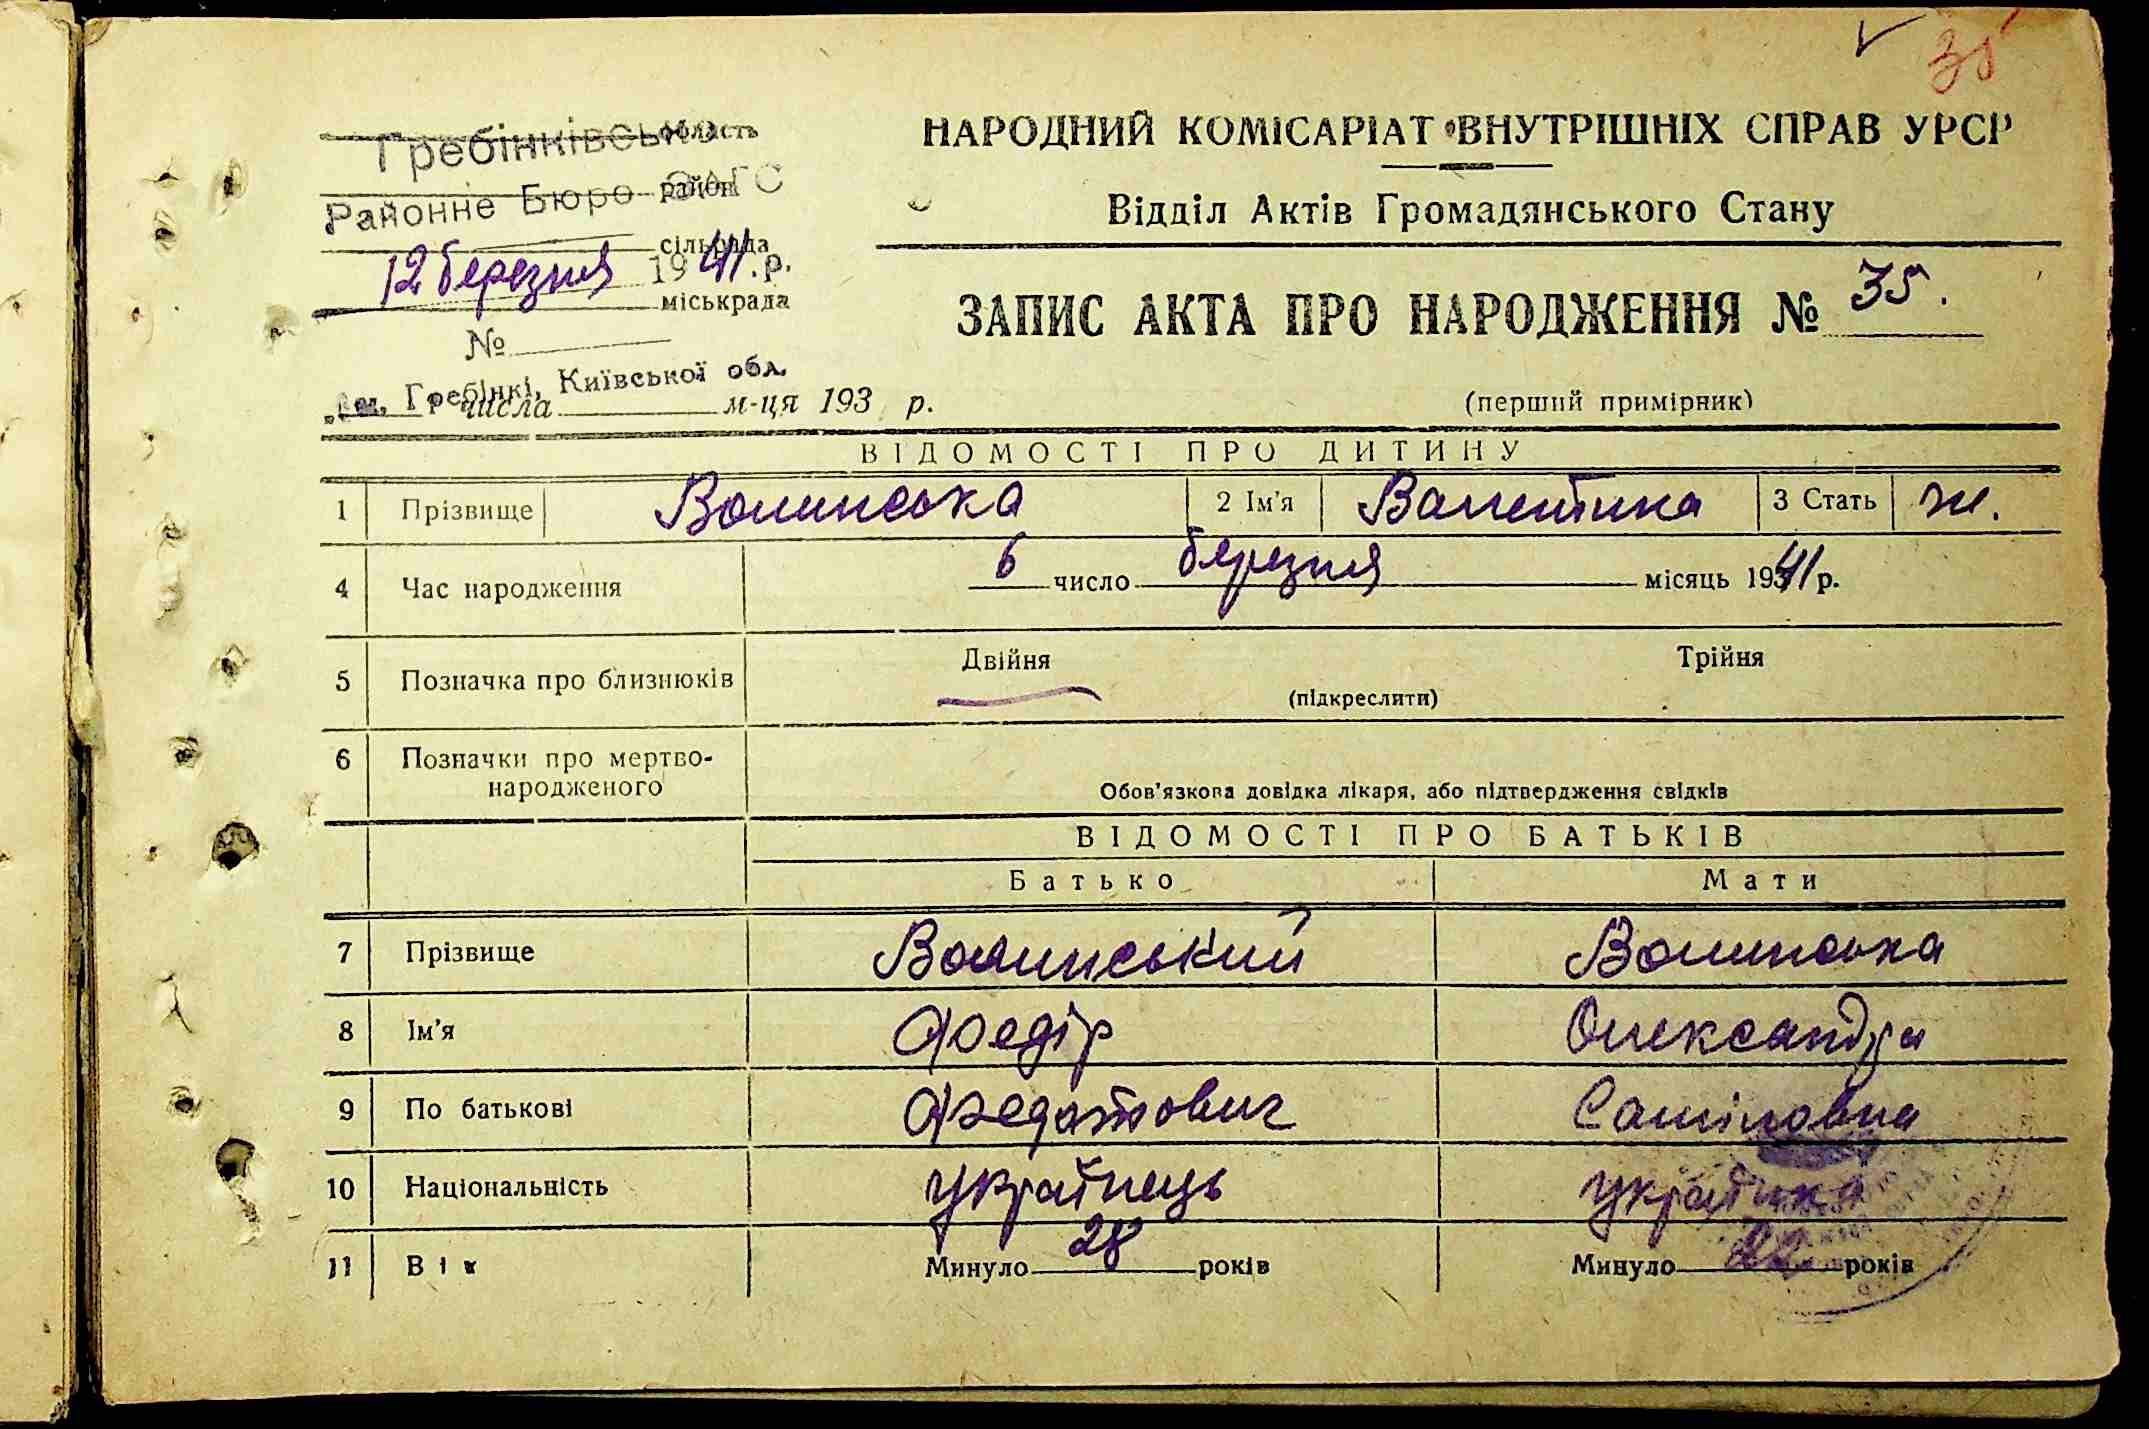 35
НАРОДНИЙ КОМІСАРІАТ ВНУТРІШНІХ СПРАВ УРСР
Відділ Актів Громадянського Стану
область
Гребінківське
район
Районне Бюро ЗАГС
сільрада
12 березня 1941.р.
міськрада
№
м. Гребінкі, Київської обл.
числа м-ця 193 р.
ЗАПИС АКТА ПРО НАРОДЖЕННЯ № 35.
(перший примірник)
ВІДОМОСТІ ПРО ДИТИНУ
1 Прізвище Волинська 2 Ім'я Валентина 3 Стать ж.
4 Час народження 6 число березня місяць 1941 р.
5 Позначка про близнюків Двійня Трійня
(підкреслити)
6 Позначки про мертво-
народженого
Обов'язкова довідка лікаря, або підтвердження свідків
ВІДОМОСТІ ПРО БАТЬКІВ
Батько Мати
7 Прізвище Волинський Волинська
8 Ім'я Федір Олександра
9 По батькові Федотович Саміловна
10 Національність українець українка
11 Вік Минуло 28 років Минуло 22 років